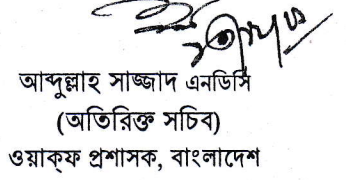 আব্দুল্লাহ সাজ্জাদ এনডিসি
(অতিরিক্ত সচিব)
ওয়াক্‌ফ প্রশাসক, বাংলাদেশ